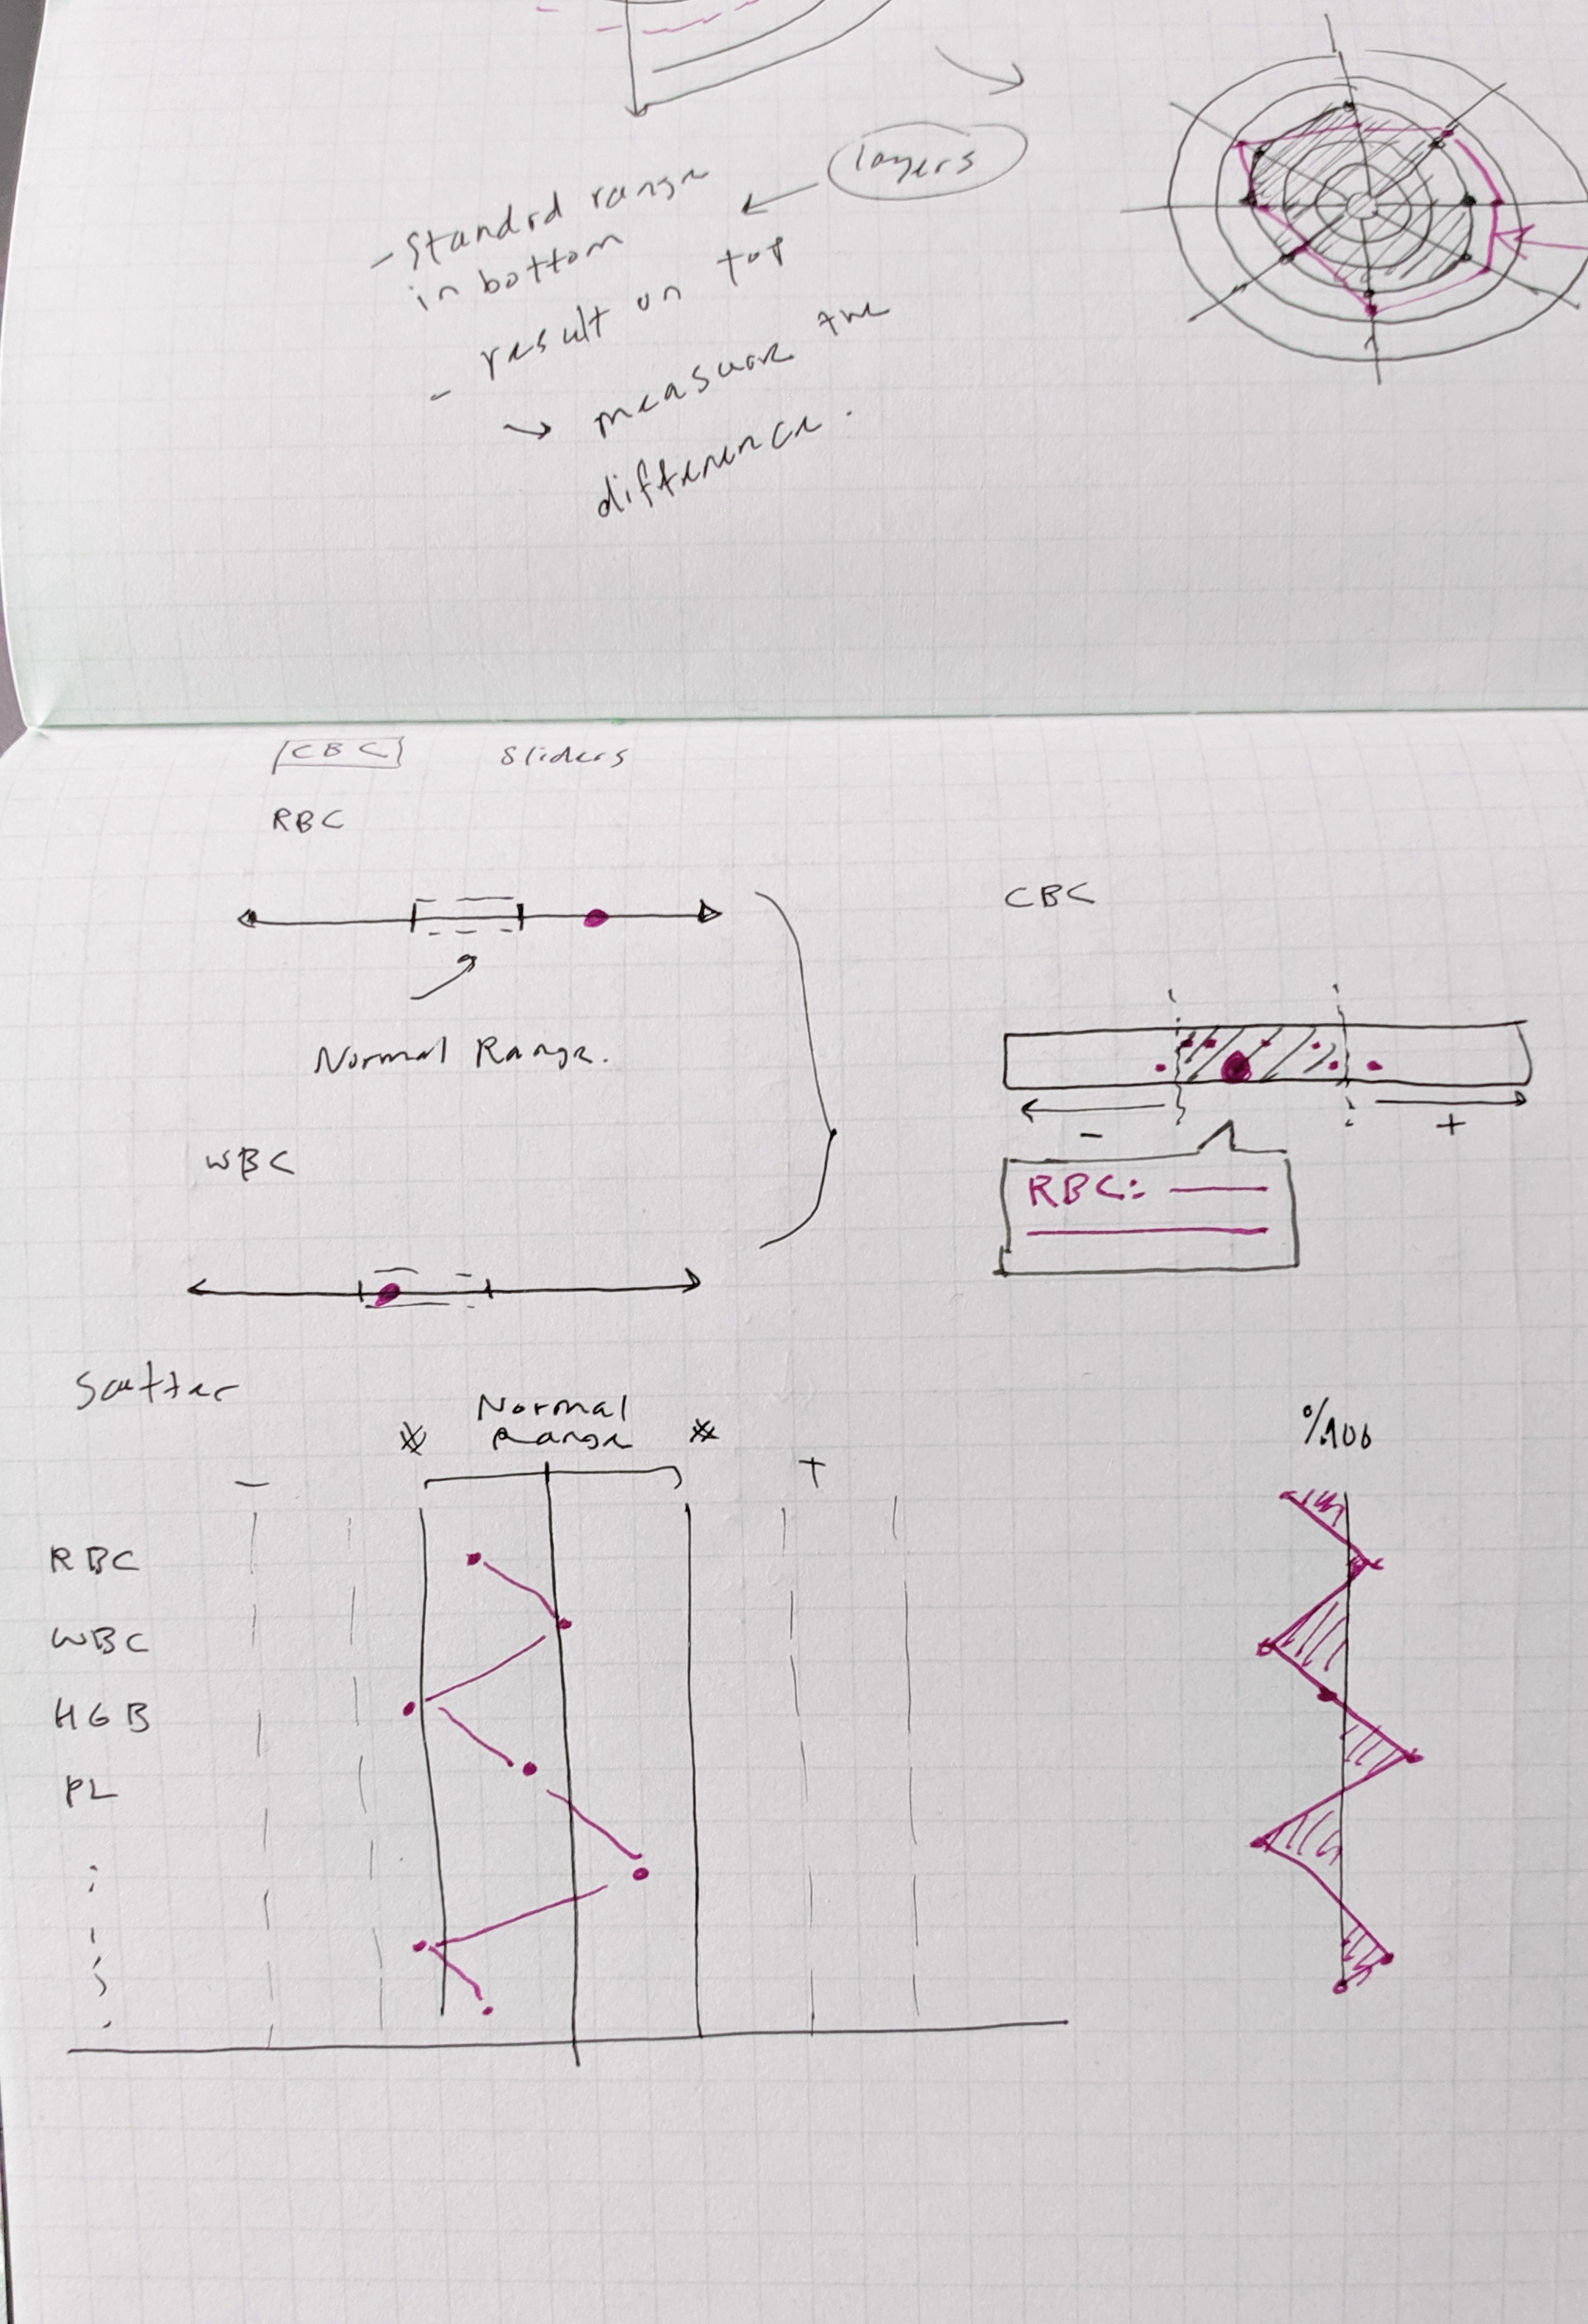 layers
- Standrd range
in bottom
- result on top
→ measure the
difference.
CBC Sliders
RBC
Normal Range.
WBC
CBC
- +
RBC:
Scatter
Normal
Range
* *
- +
RBC
WBC
HGB
PL
%100